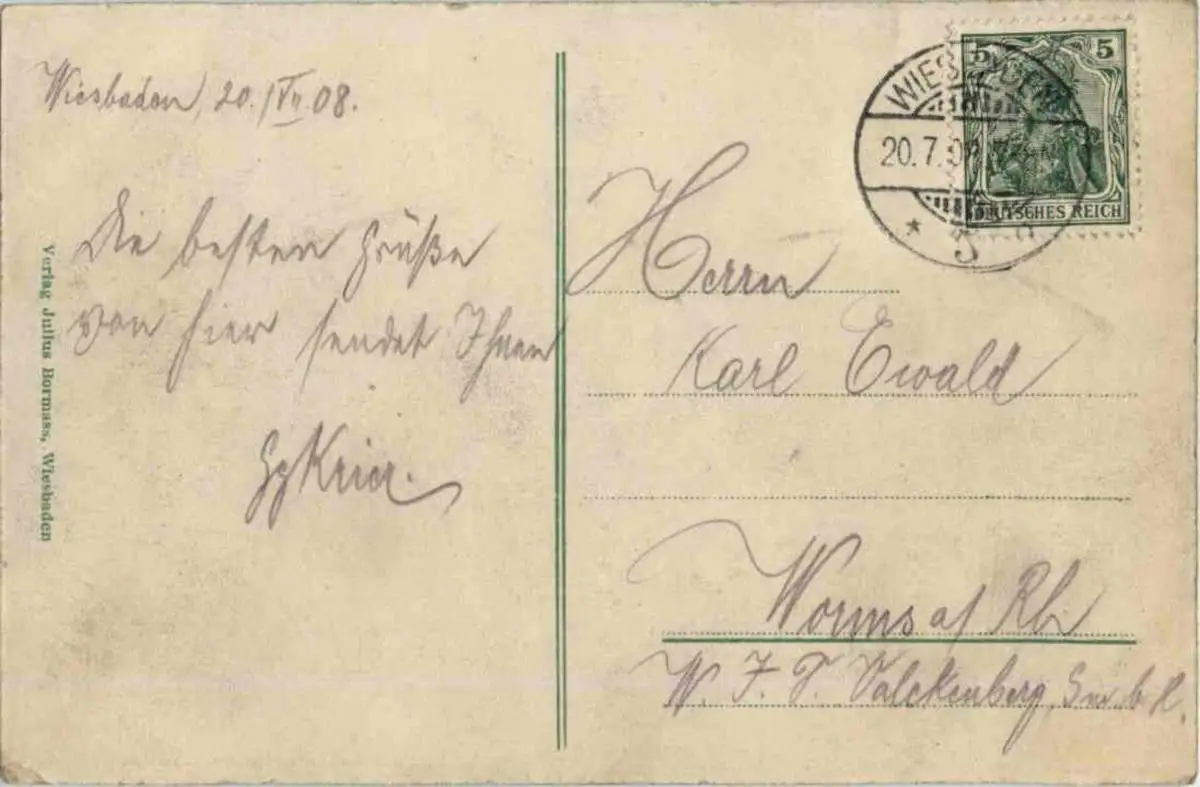 Wiesbaden, 20./VII 08.
Die besten Grüße
von hier sendet Ihnen
Verlag Julius Bormass, Wiesbaden
5 5
DEUTSCHES REICH
WIESBADEN
20.7.08
* 3
Herrn
Karl Ewald
Worms a/ Rh
W. J. D. Valckenberg, G.m.b.H.